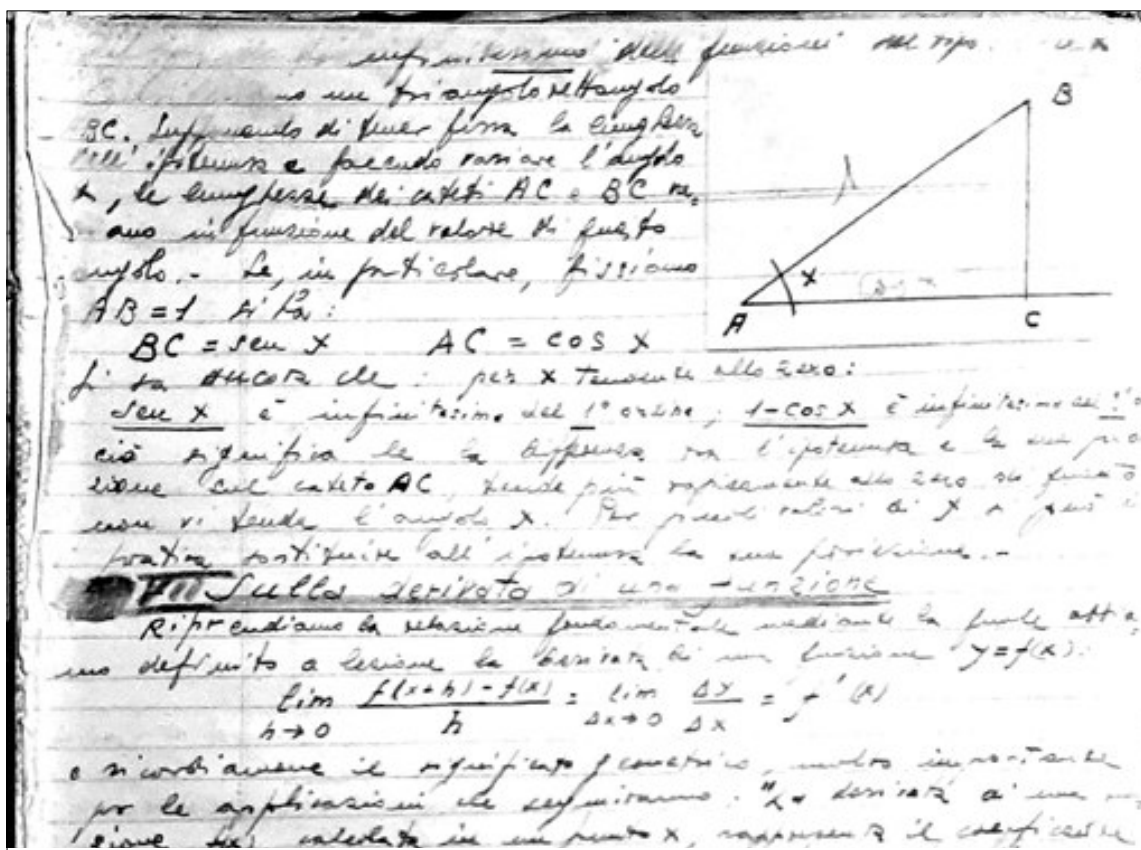 infinitesimo delle funzioni del tipo
un triangolo rettangolo
BC. Supponendo di tener fissa la lunghezza
dell'ipotenusa e facendo variare l'angolo
x, le lunghezze dei cateti AC e BC va,
ano in funzione del valore di questo
angolo. - Se, in particolare, fissiamo
AB = 1 si ha:
BC = sen x AC = cos x
Si sa ancora che: per x tendente allo zero:
sen x è infinitesimo del 1° ordine; 1-cos x è infinitesimo del
ciò significa che la differenza tra l'ipotenusa e la sua
zione sul cateto AC, tende più rapidamente allo zero di quanto
non vi tenda l'angolo x. Per piccoli valori di x si può
pratica sostituire all'ipotenusa la sua proiezione. -
Sulla derivata di una funzione
Riprendiamo la relazione fondamentale mediante la quale abbia,
mo definito a lezione la derivata di una funzione y=f(x):
lim h→0 f(x+h)-f(x) / h = lim Δx→0 Δy / Δx = f'(x)
e ricordiamone il significato geometrico, molto importante
per le applicazioni che seguiranno: "La derivata di una
zione calcolata in un punto x, rappresenta il coefficiente
B
x
A
C